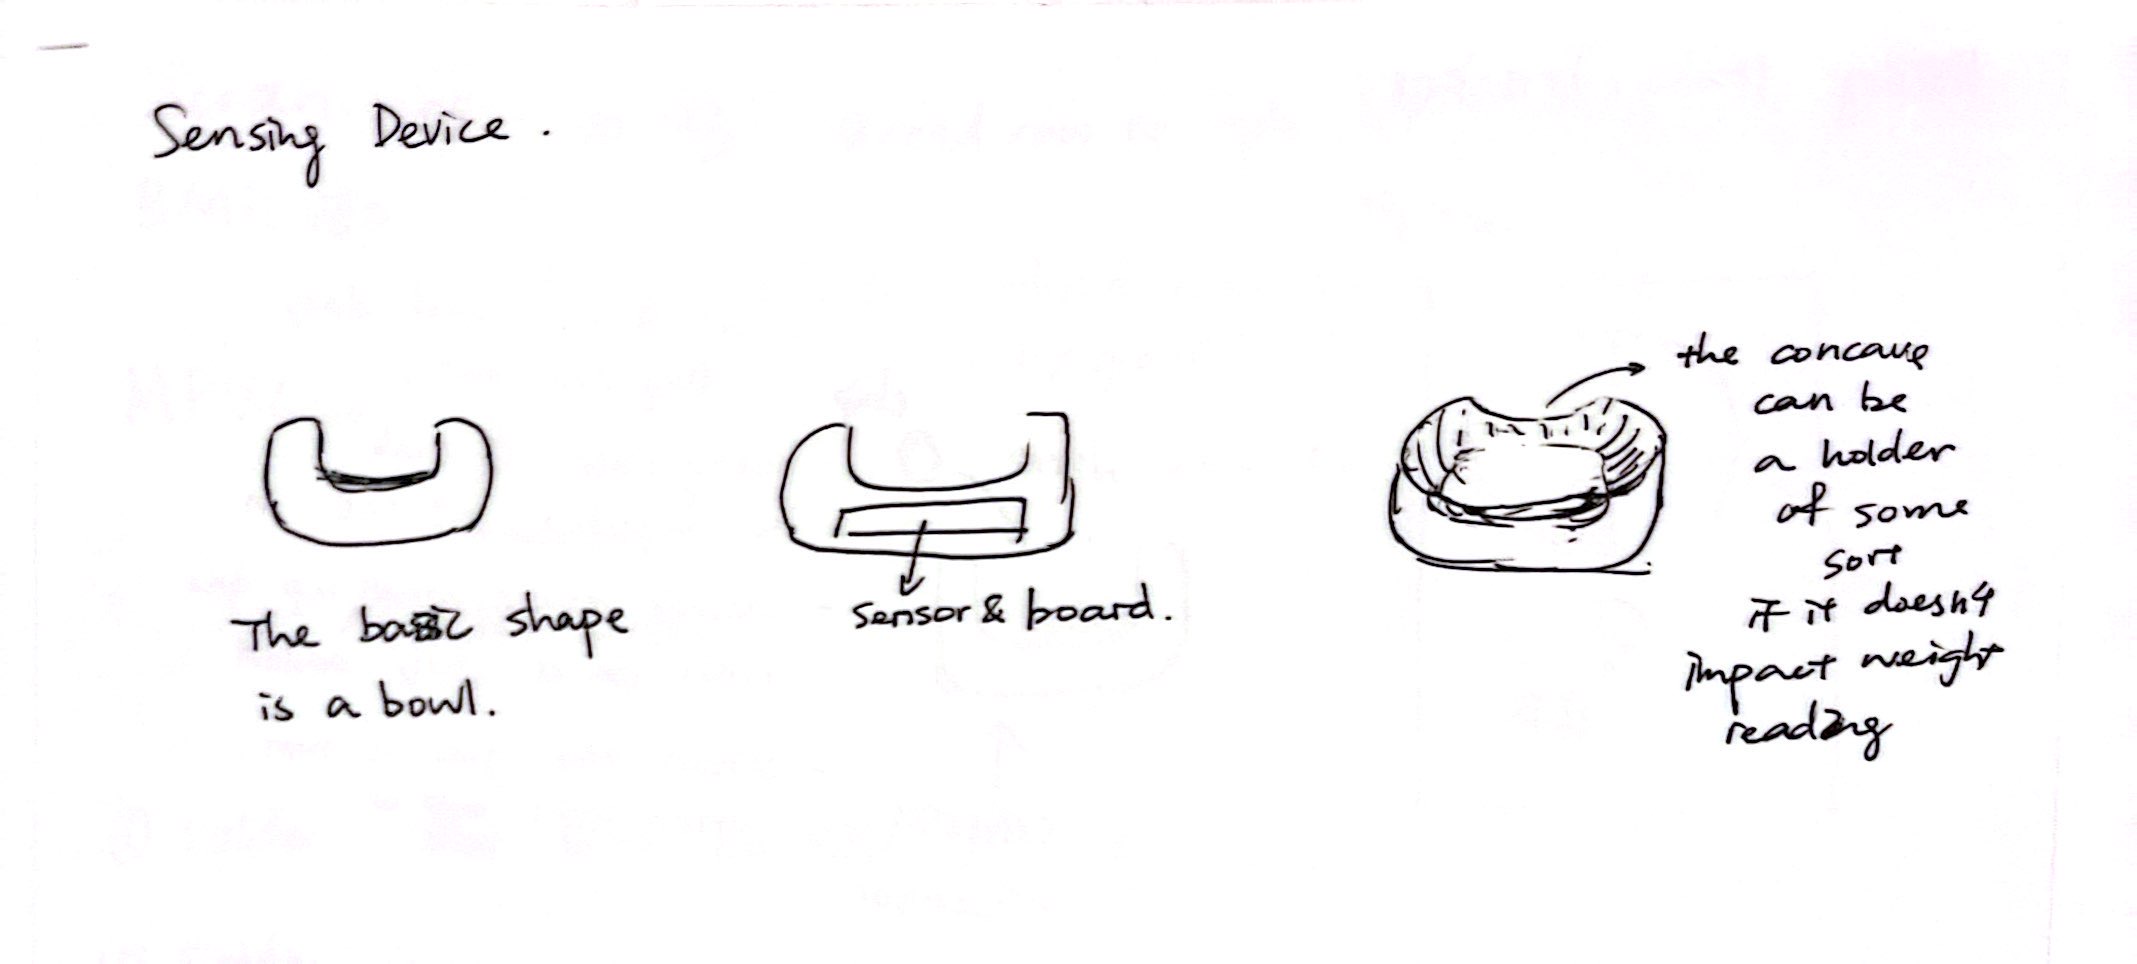 Sensing Device.
The basic shape
is a bowl.
sensor & board.
the concave
can be
a holder
of some
sort
if it doesn't
impact weight
reading